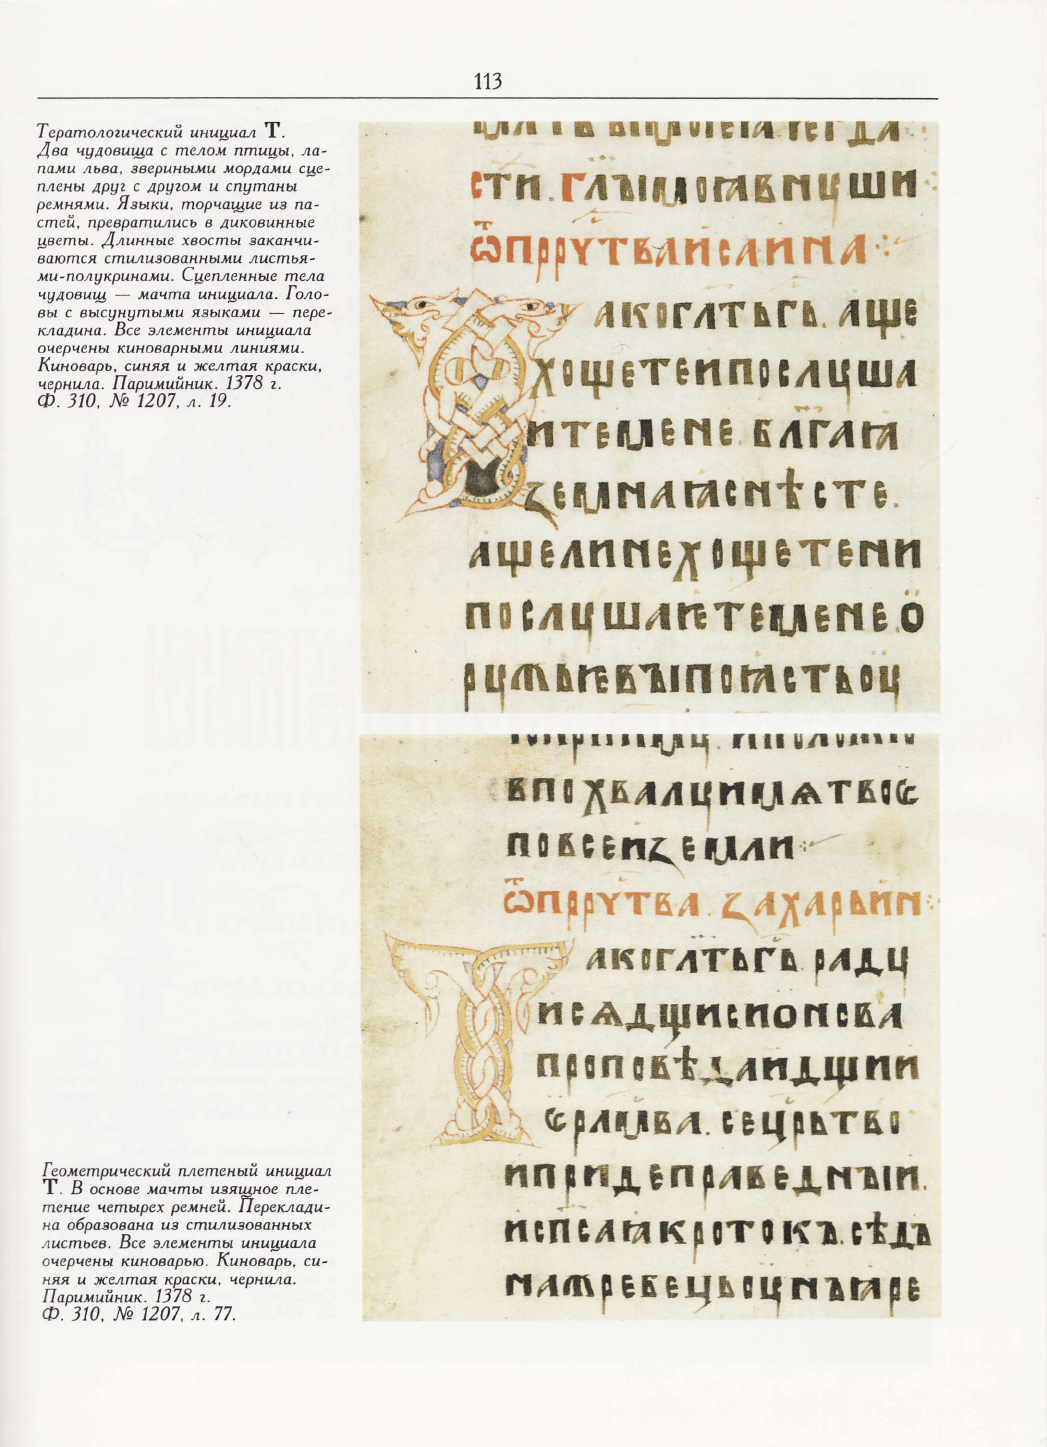 113
Тератологический инициал Т.
Два чудовища с телом птицы, ла-
пами льва, звериными мордами сце-
плены друг с другом и спутаны
ремнями. Языки, торчащие из па-
стей, превратились в диковинные
цветы. Длинные хвосты заканчи-
ваются стилизованными листья-
ми-полукринами. Сцепленные тела
чудовищ — мачта инициала. Голо-
вы с высунутыми языками — пере-
кладина. Все элементы инициала
очерчены киноварными линиями.
Киноварь, синяя и желтая краски,
чернила. Паримийник. 1378 г.
Ф. 310, № 1207, л. 19.
ѿпррⷱ҇тваисаина
Т акоглтьгь. аще
хощетеипослѹша
итемене. блгаꙗ
ꙁемлꙗснѣсте.
ащелинехощетени
послѹшаѥтемене.ѻ
рѹжьѥвꙑпоꙗстьоѹ
впохвалѹимѧтвоѥ
повсеиꙁемли
ѿпррⷱ҇тва.ꙁахарьин
Т акоглтьгь.радѹ
исѧдщисионова
проповѣдаидщии
ѥрамва.сецрьтво
ипридеправеднꙑи.
испсаꙗкротокъ.сѣдъ
нажребецьоѹнꙑꙗре
Геометрический плетеный инициал
Т. В основе мачты изящное пле-
тение четырех ремней. Переклади-
на образована из стилизованных
листьев. Все элементы инициала
очерчены киноварью. Киноварь, си-
няя и желтая краски, чернила.
Паримийник. 1378 г.
Ф. 310, № 1207, л. 77.